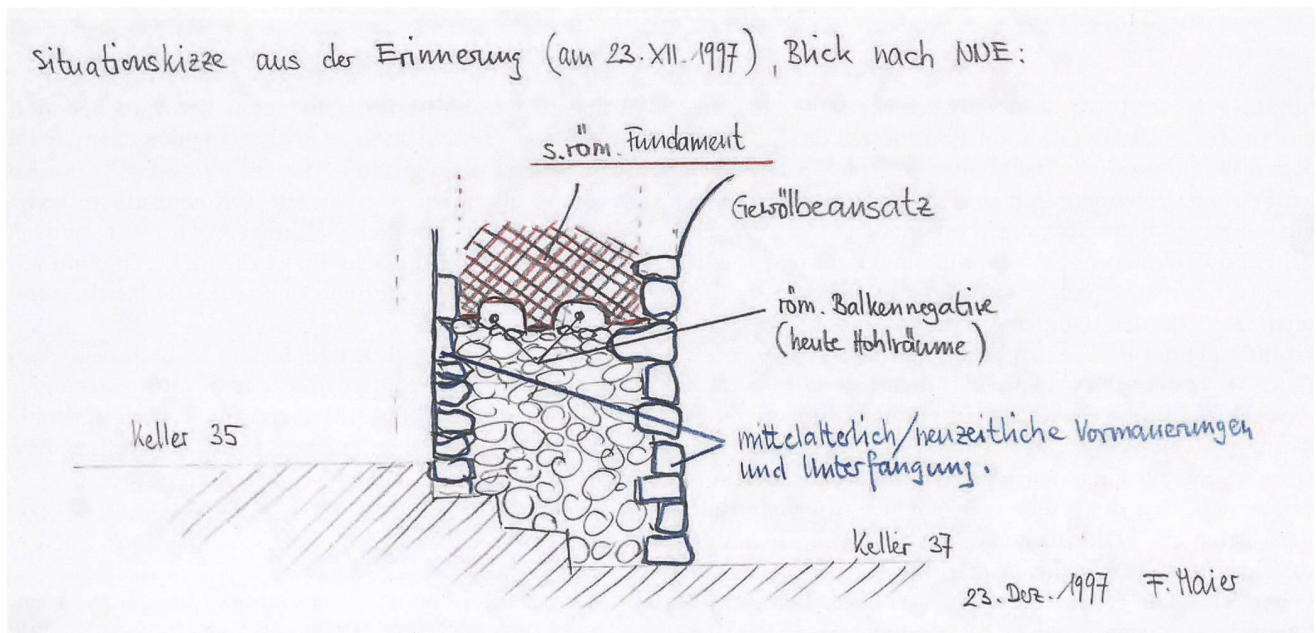 Situationskizze aus der Erinnerung (am 23. XII. 1997), Blick nach NNE:
s. röm. Fundament
Gewölbeansatz
röm. Balkennegative
(heute Hohlräume)
Keller 35
mittelalterlich/neuzeitliche Vormauerungen
und Unterfangung.
Keller 37
23. Dez. 1997 F. Maier